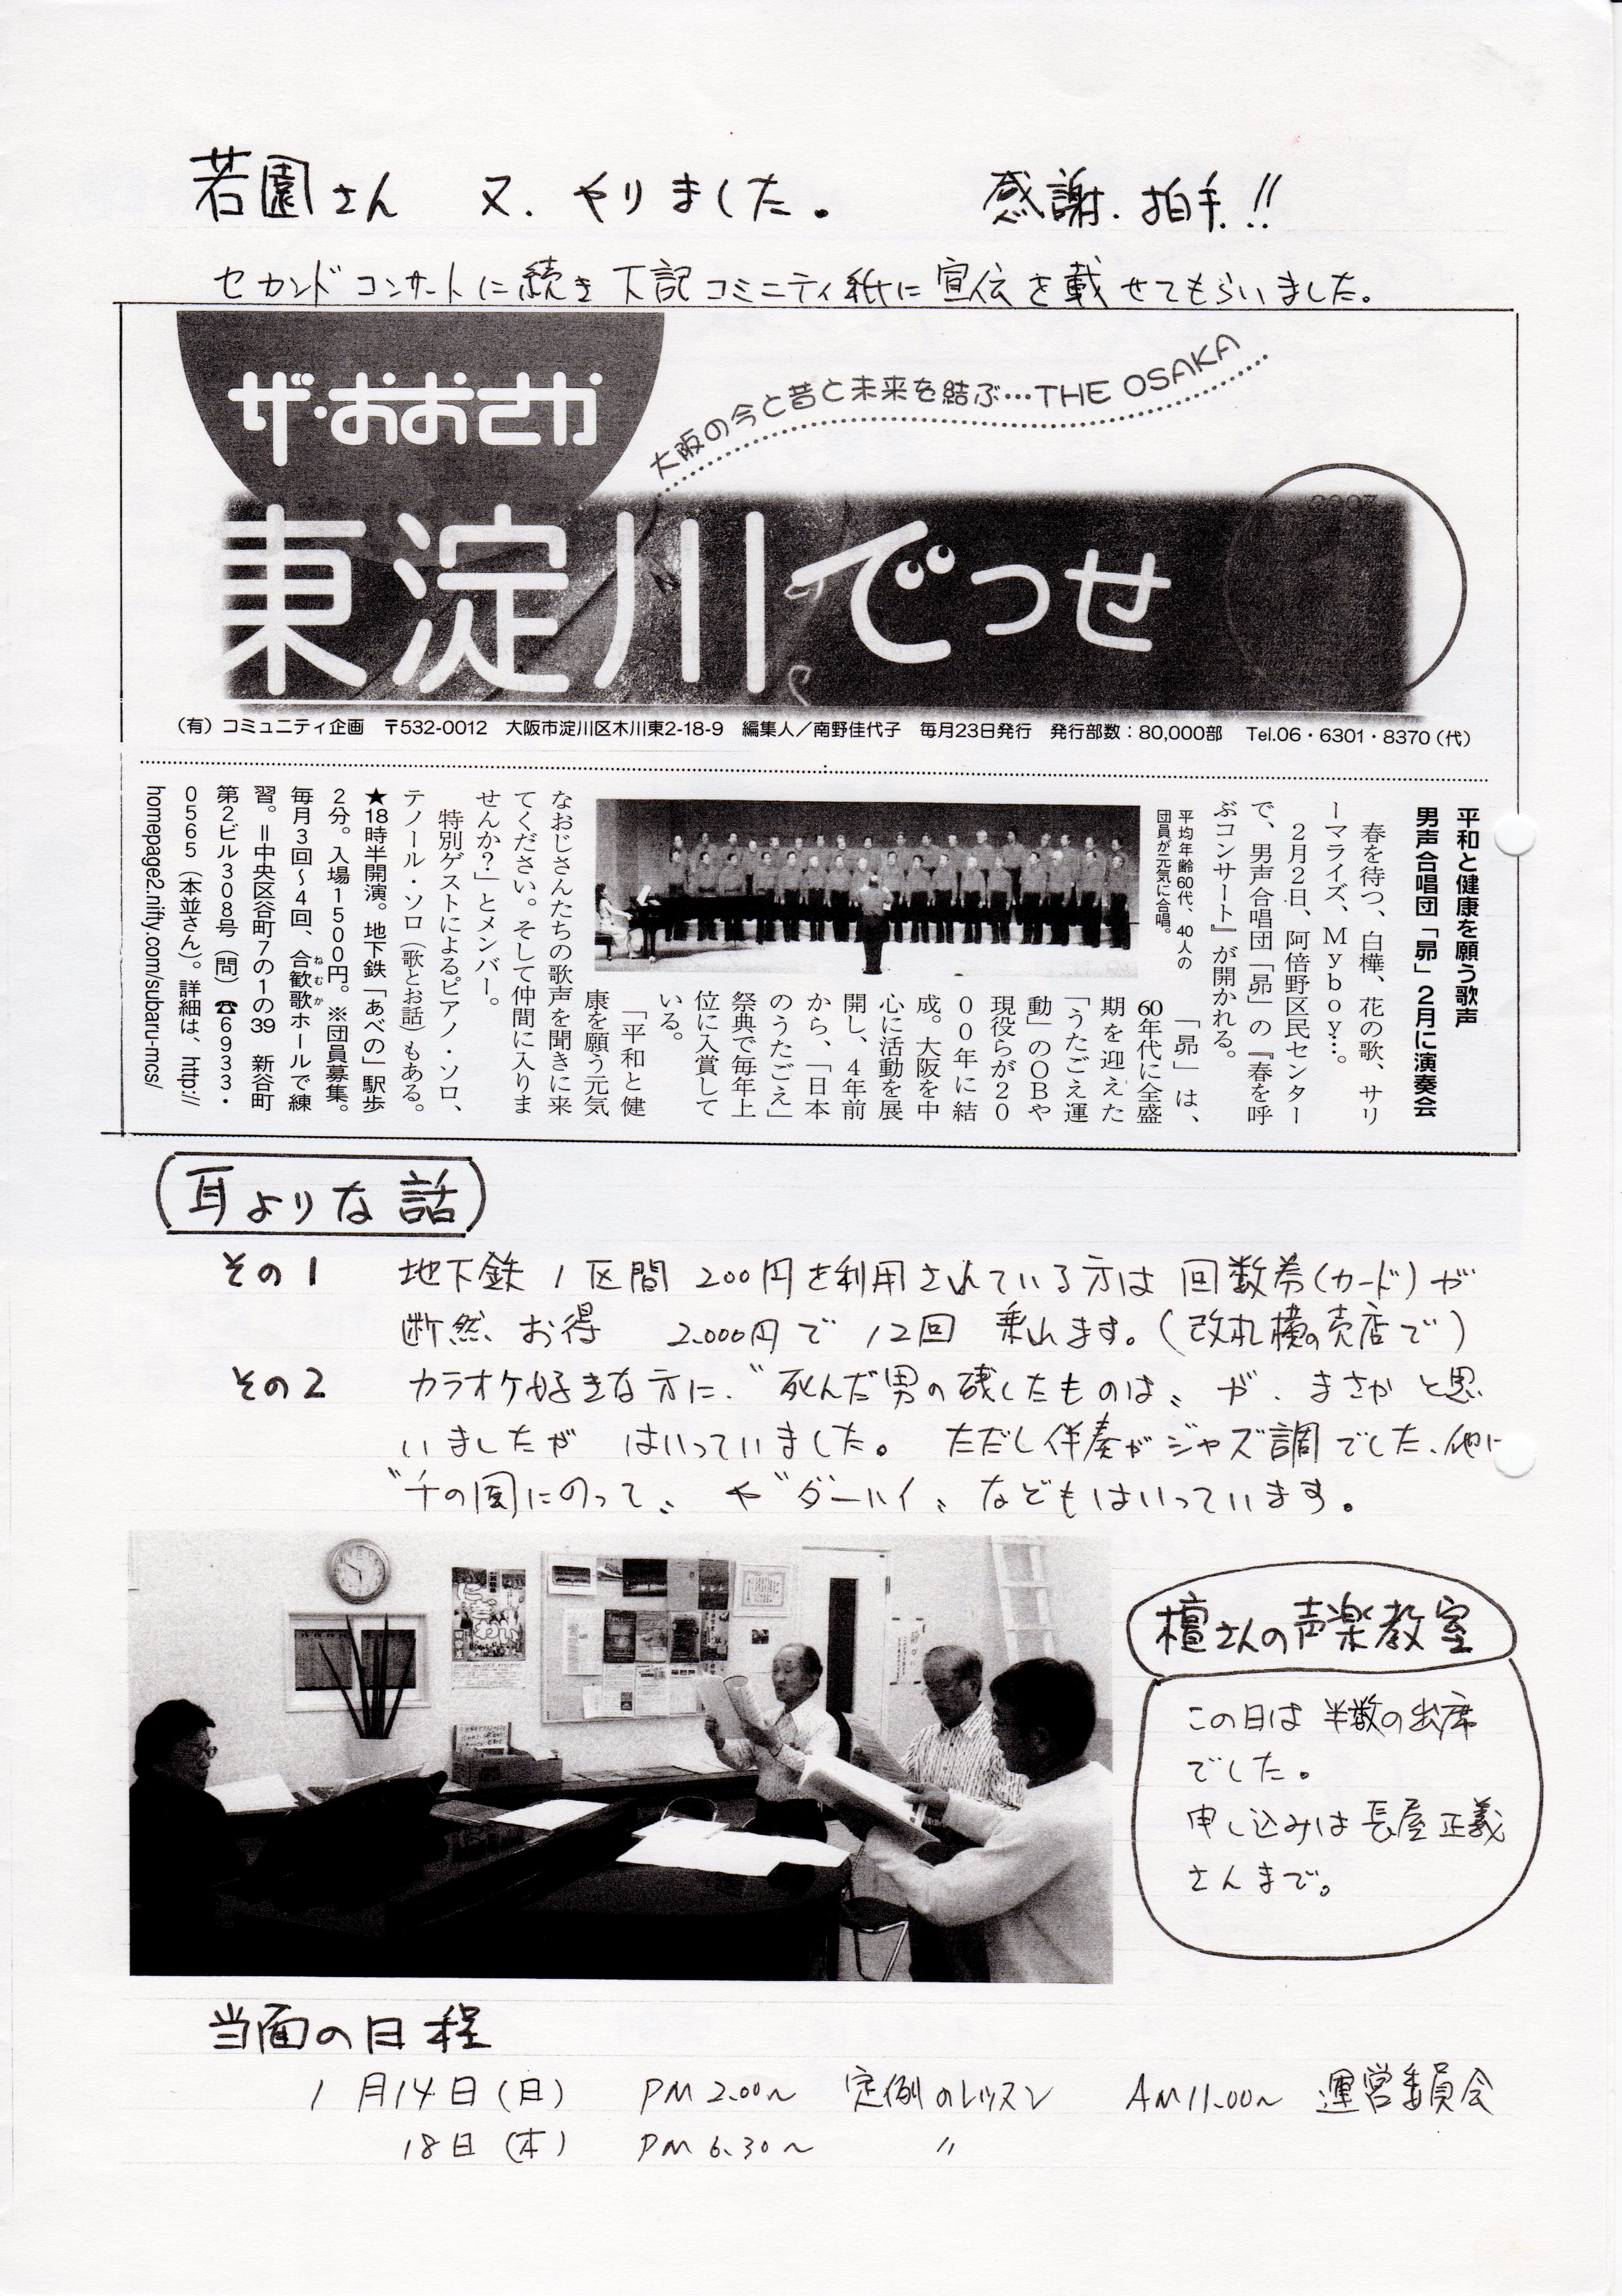 若園さん 又、やりました。 感謝、拍手!!
セカンドコンサートに続き下記コミニティ紙に宣伝を載せてもらいました。
ザ・おおさか
大阪の今と昔と未来を結ぶ…THE OSAKA
2007
東淀川でっせ
(有)コミュニティ企画 〒532-0012 大阪市淀川区木川東2-18-9 編集人/南野佳代子 毎月23日発行 発行部数:80,000部 Tel.06・6301・8370(代)
平和と健康を願う歌声
男声合唱団「昴」2月に演奏会
春を待つ、白樺、花の歌、サリ
ーマライズ、Myboy…。
2月2日、阿倍野区民センター
で、男声合唱団「昴」の『春を呼
ぶコンサート』が開かれる。
平均年齢60代、40人の
団員が元気に合唱。
「昴」は、
60年代に全盛
期を迎えた
「うたごえ運
動」のOBや
現役らが20
00年に結
成。大阪を中
心に活動を展
開し、4年前
から、「日本
のうたごえ」
祭典で毎年上
位に入賞して
いる。
「平和と健
康を願う元気
なおじさんたちの歌声を聞きに来
てください。そして仲間に入りま
せんか?」とメンバー。
特別ゲストによるピアノ・ソロ、
テノール・ソロ(歌とお話)もある。
★18時半開演。地下鉄「あべの」駅歩
2分。入場1500円。※団員募集。
毎月3回~4回、合歓歌ホールで練
ねむか
習。=中央区谷町7の1の39 新谷町
第2ビル308号(問)☎6933・
0565(本並さん)。詳細は、http://
homepage2.nifty.com/subaru-mcs/
耳よりな話
その1 地下鉄1区間200円を利用されている方は回数券(カード)が
断然、お得 2.000円で12回 乗れます。(改札横の売店で)
その2 カラオケ好きな方に、〝死んだ男の残したものは〟が、まさかと思
いましたが はいっていました。 ただし伴奏がジャズ調でした、他に
〝千の風にのって〟や〝ダーハイ〟などもはいっています。
檀さんの声楽教室
この日は半数の出席
でした。
申し込みは長屋正義
さんまで。
当面の日程
1月14日(日) PM2.00~ 定例のレッスン AM11.00~ 運営委員会
18日(木) PM6.30~ 〃